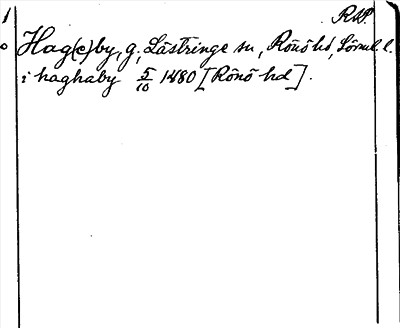 1 R.W.
Hag(e)by, g, Lästringe sn, Rönö hd, Sörml. l.
i haghaby 5/10 1480 [Rönö hd].